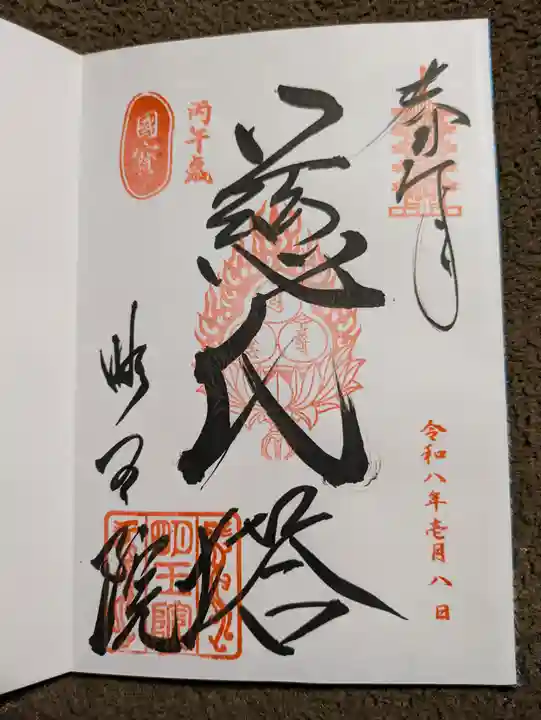 奉拝
令和八年壱月八日
慈氏塔
丙午歳
國寳
明王院
明王院